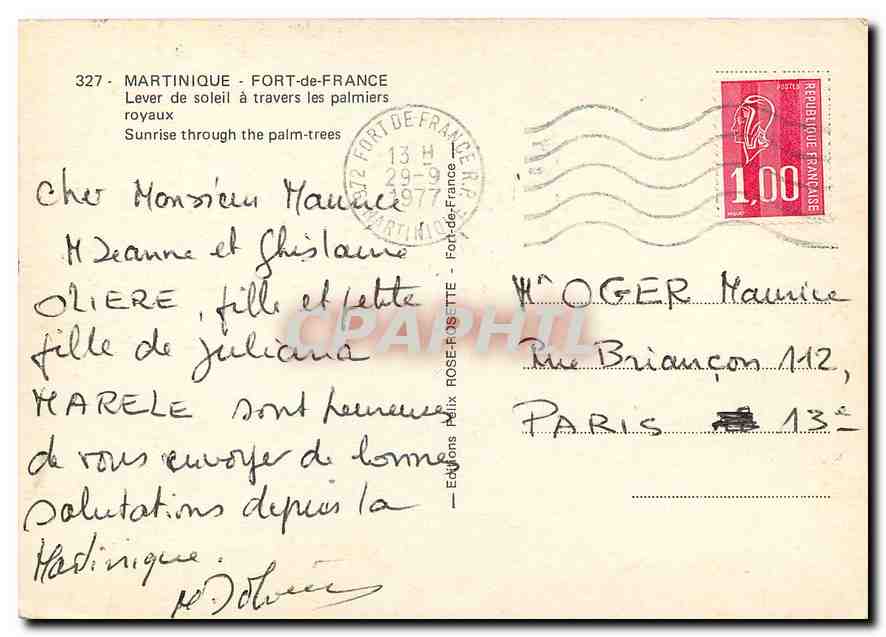 327 - MARTINIQUE - FORT-de-FRANCE
Lever de soleil à travers les palmiers
royaux
Sunrise through the palm-trees
372 FORT DE FRANCE R.P.
13 H
29-9
1977
MARTINIQUE
POSTES
REPUBLIQUE FRANÇAISE
1,00
Cher Monsieur Maurice
M Jeanne et Ghislaine
OLIERE, fille et petite
fille de Juliana
MARELE sont heureuses
de vous envoyer de bonnes
salutations depuis la
Martinique.
— Editions Félix ROSE-ROSETTE - Fort-de-France —
Mr OGER Maurice
Rue Briançon 112,
PARIS 13e
CPAPHIL